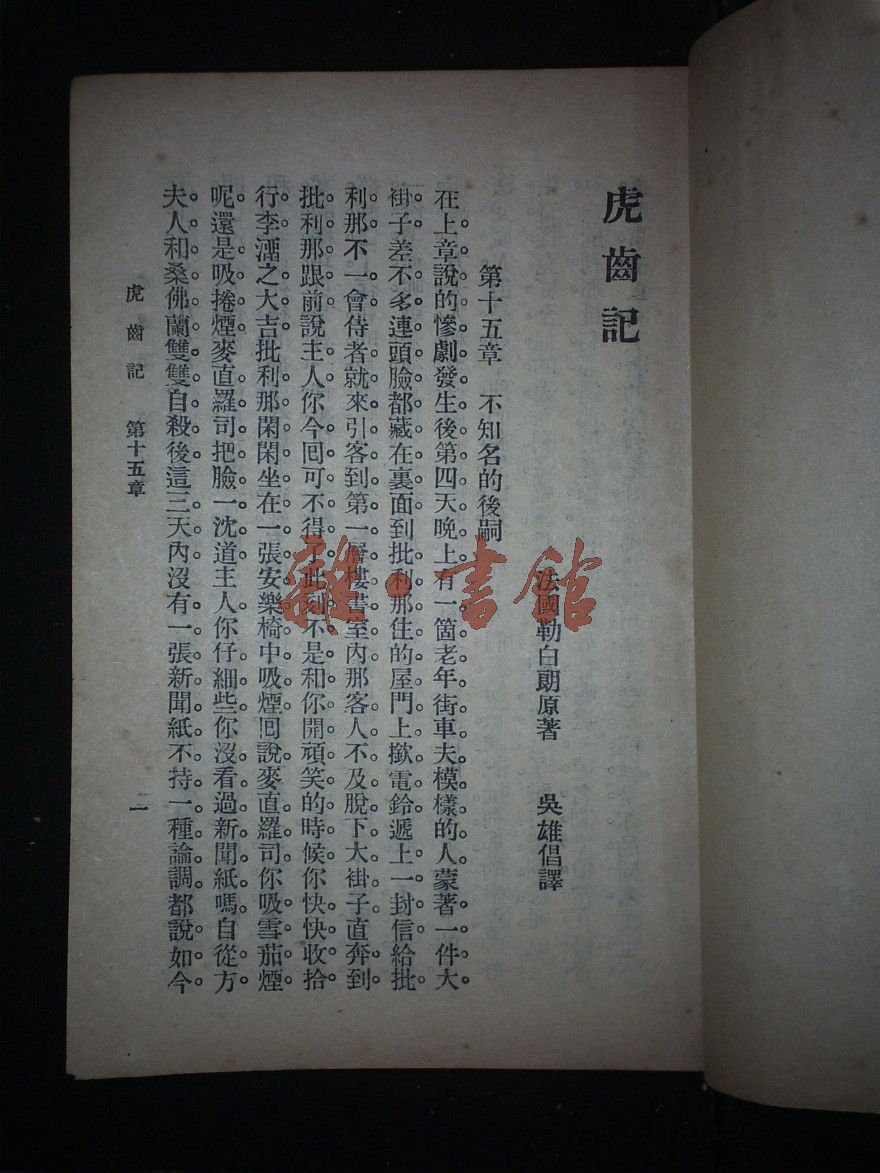 虎齒記
法國勒白朗原著 吳雄倡譯
第十五章 不知名的後嗣
在上章說的慘劇發生後第四天晚上有一箇老年街車夫模樣的人蒙著一件大
褂子差不多連頭臉都藏在裏面到批利那住的屋門上撳電鈴遞上一封信給批
利那不一會侍者就來引客到第一層樓書室內那客人不及脫下大褂子直奔到
批利那跟前說主人你今回可不得了此刻不是和你開頑笑的時候你快快收拾
行李溜之大吉批利那閑閑坐在一張安樂椅中吸煙回說麥直羅司你吸雪茄煙
呢還是吸捲煙麥直羅司把臉一沈道主人你仔細些你沒看過新聞紙嗎自從方
夫人和桑佛蘭雙雙自殺後這三天內沒有一張新聞紙不持一種論調都說如今
虎齒記 第十五章
一
雜·書館